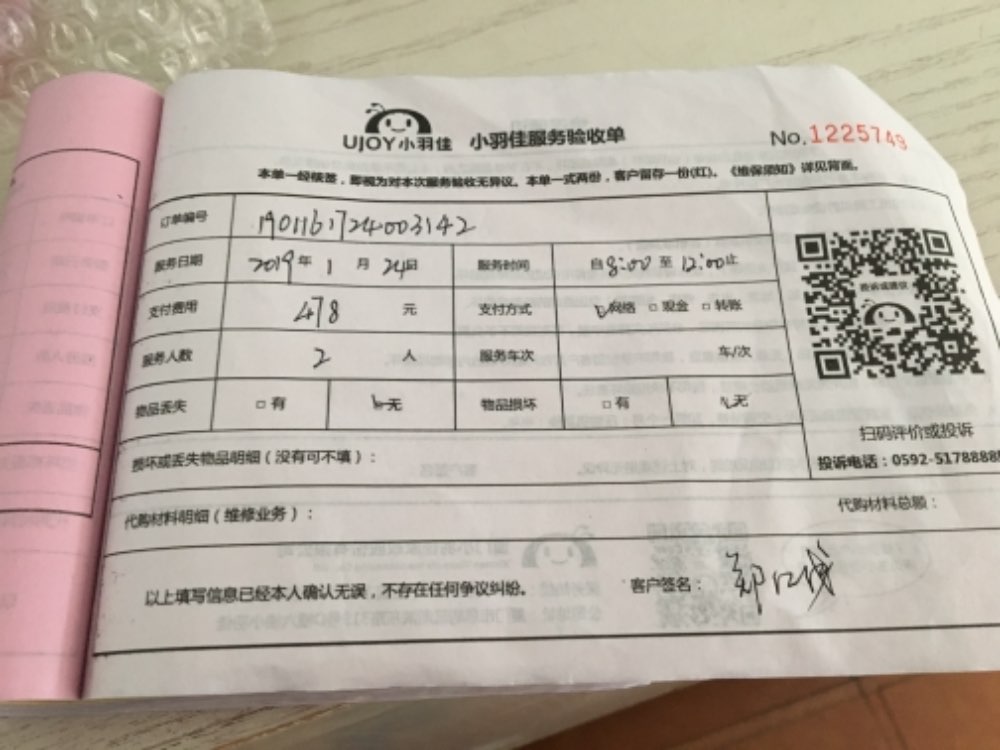 UJOY小羽佳 小羽佳服务验收单 No.1225749
本单一经核签，即视为对本次服务验收无异议。本单一式两份，客户留存一份(红)。《维保须知》详见背面。
订单编号 1901161724003142
服务日期 2019年 1 月 24日 服务时间 自8:00至12:00止
支付费用 478 元 支付方式 ☑网络 □现金 □转账
服务人数 2 人 服务车次 车/次
物品丢失 □有 ☑无 物品损坏 □有 ☑无
投诉或建议
扫码评价或投诉
投诉电话：0592-5178888
损坏或丢失物品明细（没有可不填）：
代购材料明细（维修业务）： 代购材料总额：
以上填写信息已经本人确认无误，不存在任何争议纠纷。 客户签名：郑